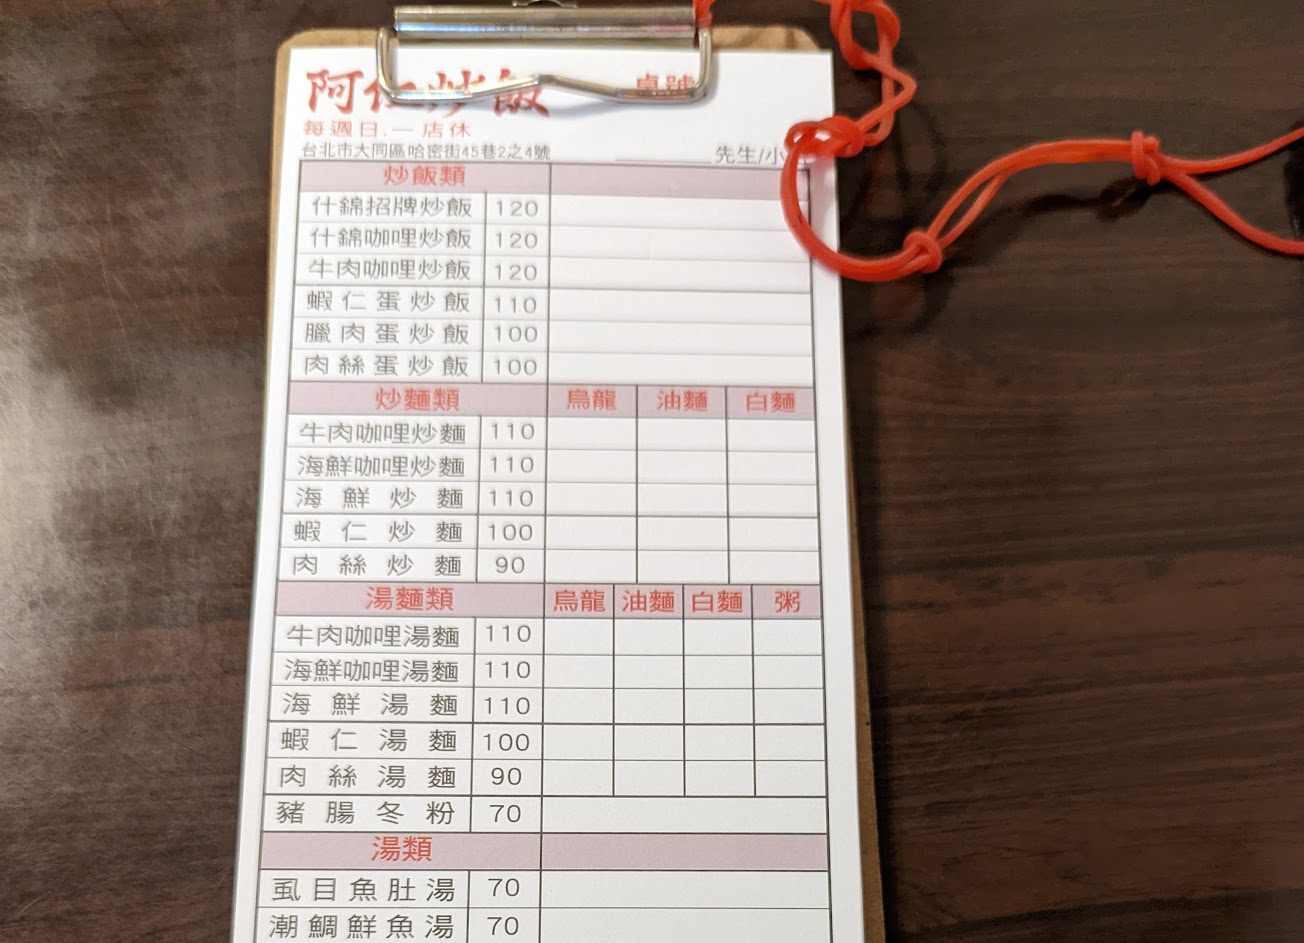 阿仁炒飯 桌號
每週日.一店休
台北市大同區哈密街45巷2之4號 先生/小
炒飯類
什錦招牌炒飯 120
什錦咖哩炒飯 120
牛肉咖哩炒飯 120
蝦仁蛋炒飯 110
臘肉蛋炒飯 100
肉絲蛋炒飯 100
炒麵類 烏龍 油麵 白麵
牛肉咖哩炒麵 110
海鮮咖哩炒麵 110
海鮮炒麵 110
蝦仁炒麵 100
肉絲炒麵 90
湯麵類 烏龍 油麵 白麵 粥
牛肉咖哩湯麵 110
海鮮咖哩湯麵 110
海鮮湯麵 110
蝦仁湯麵 100
肉絲湯麵 90
豬腸冬粉 70
湯類
虱目魚肚湯 70
潮鯛鮮魚湯 70